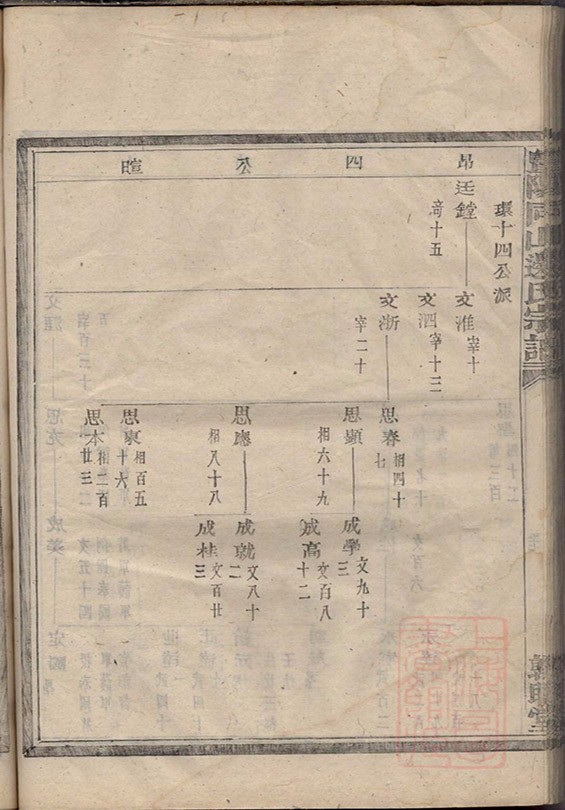 暨陽同山邊氏宗譜
昂四公暄
環十四公派
廷鏜
竒十五
文淮宰十
文泗宰十三
文浙
宰二十
思春相四十七
思顯
相六十九
思應
相八十八
思東相百五十六
思本相二百廿三
成學文九十三
成高文百八十二
成就文八十二
成桂文百廿三